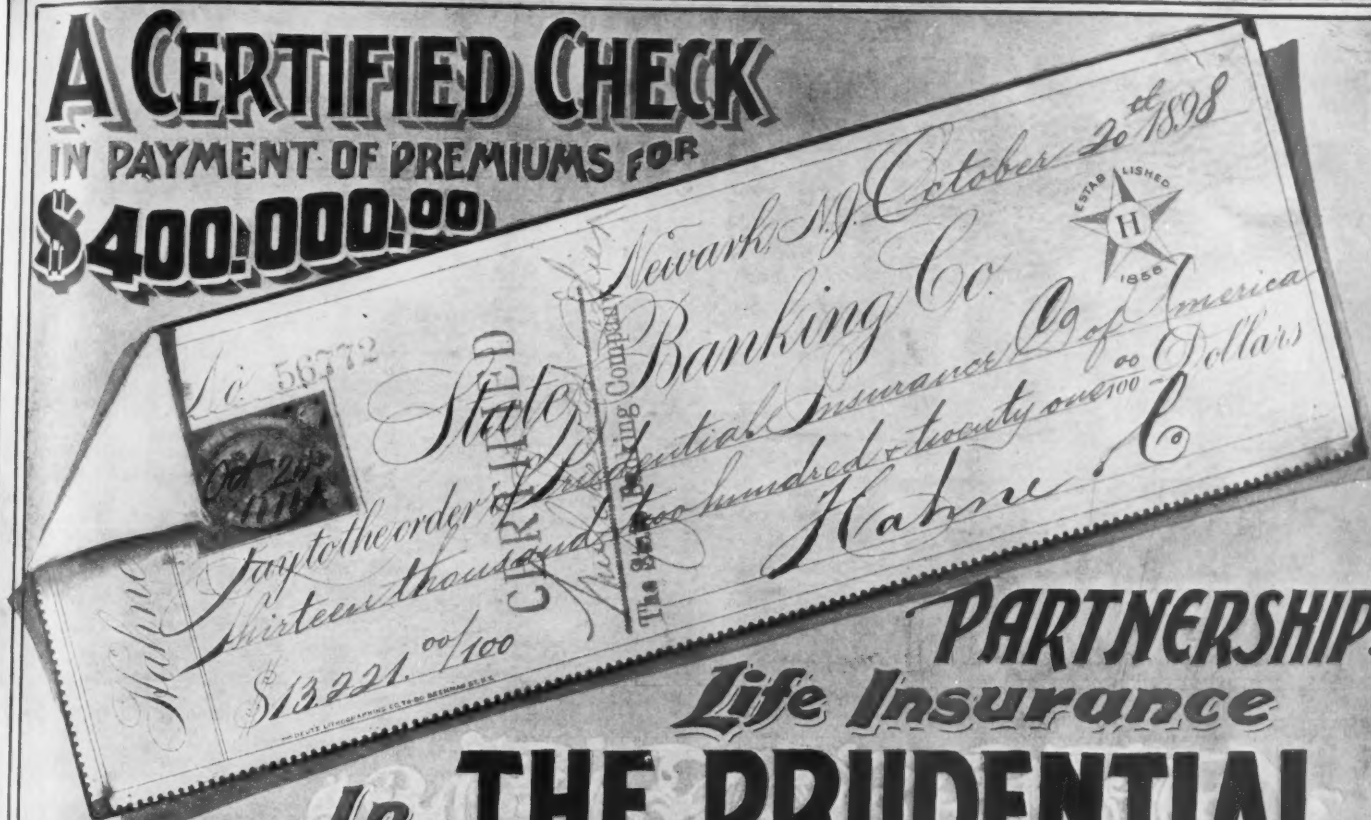 A CERTIFIED CHECK
IN PAYMENT OF PREMIUMS FOR
$400.000.00
Newark, N.J. October 20th 1898
ESTABLISHED
H
1858
No. 56772
State Banking Co.
Oct 20
Pay to the order of Prudential Insurance Co of America
Thirteen thousand two hundred & twenty one 00/100 Dollars
Hahne & Co
$13.221.00/100
CERTIFIED
The State Banking Company
Hahne
PARTNERSHIP
Life Insurance
In THE PRUDENTIAL